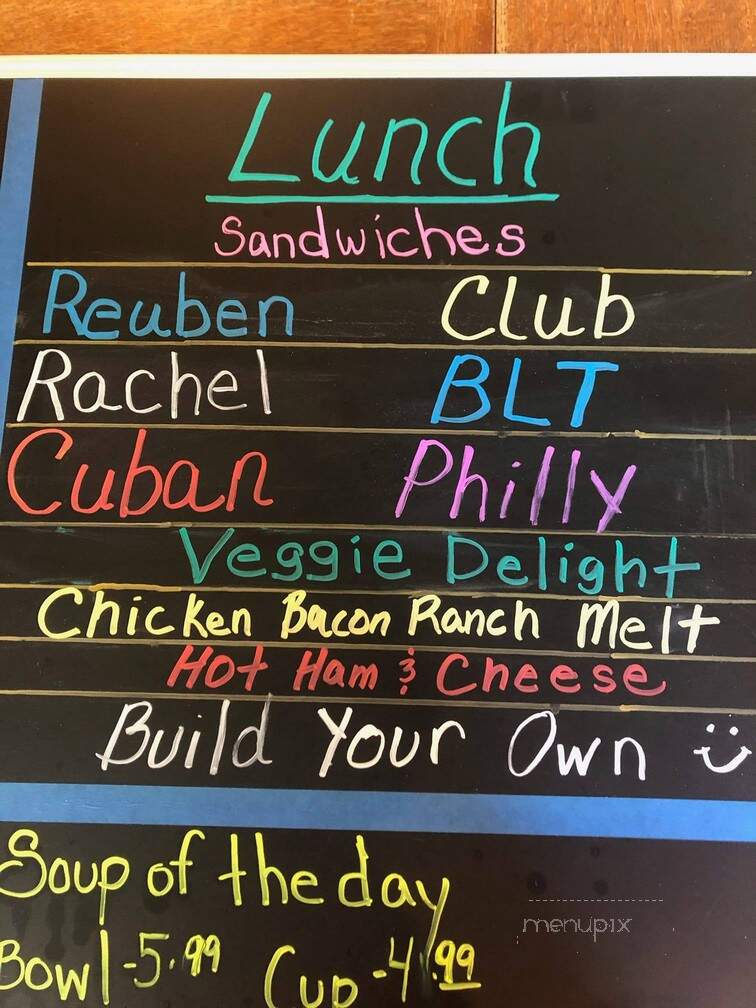 Lunch
Sandwiches
Reuben Club
Rachel BLT
Cuban Philly
Veggie Delight
Chicken Bacon Ranch Melt
Hot Ham & Cheese
Build Your Own
Soup of the day
Bowl-5.99 Cup-4.99
menupix